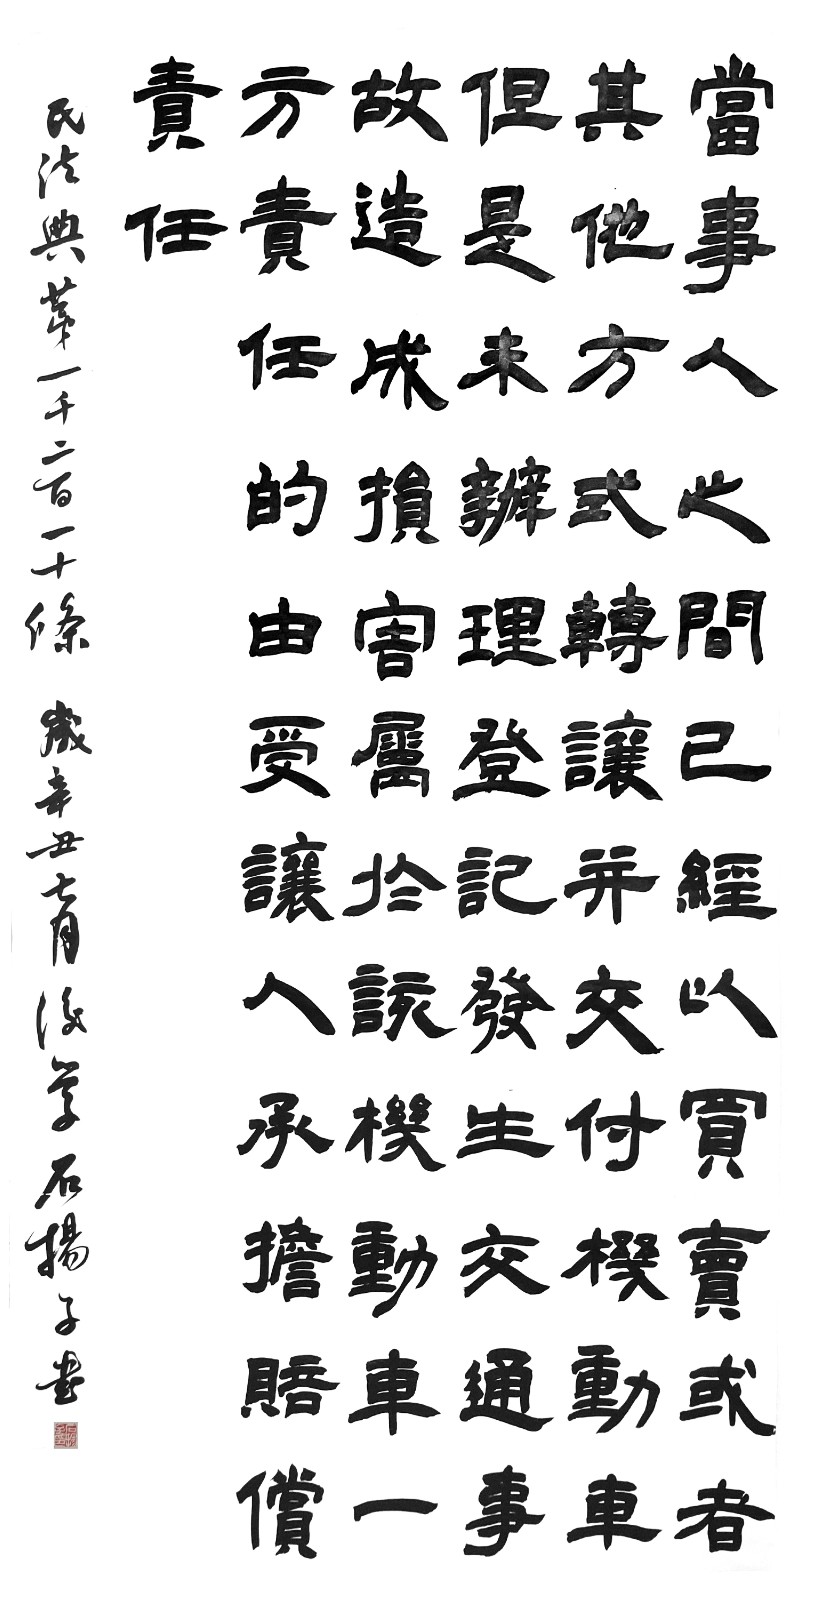 當事人之間已經以買賣或者
其他方式轉讓并交付機動車
但是未辦理登記發生交通事
故造成損害屬於該機動車一
方責任的由受讓人承擔賠償
責任
民法典第一千二百一十條 歲辛丑七月後學石揚子書